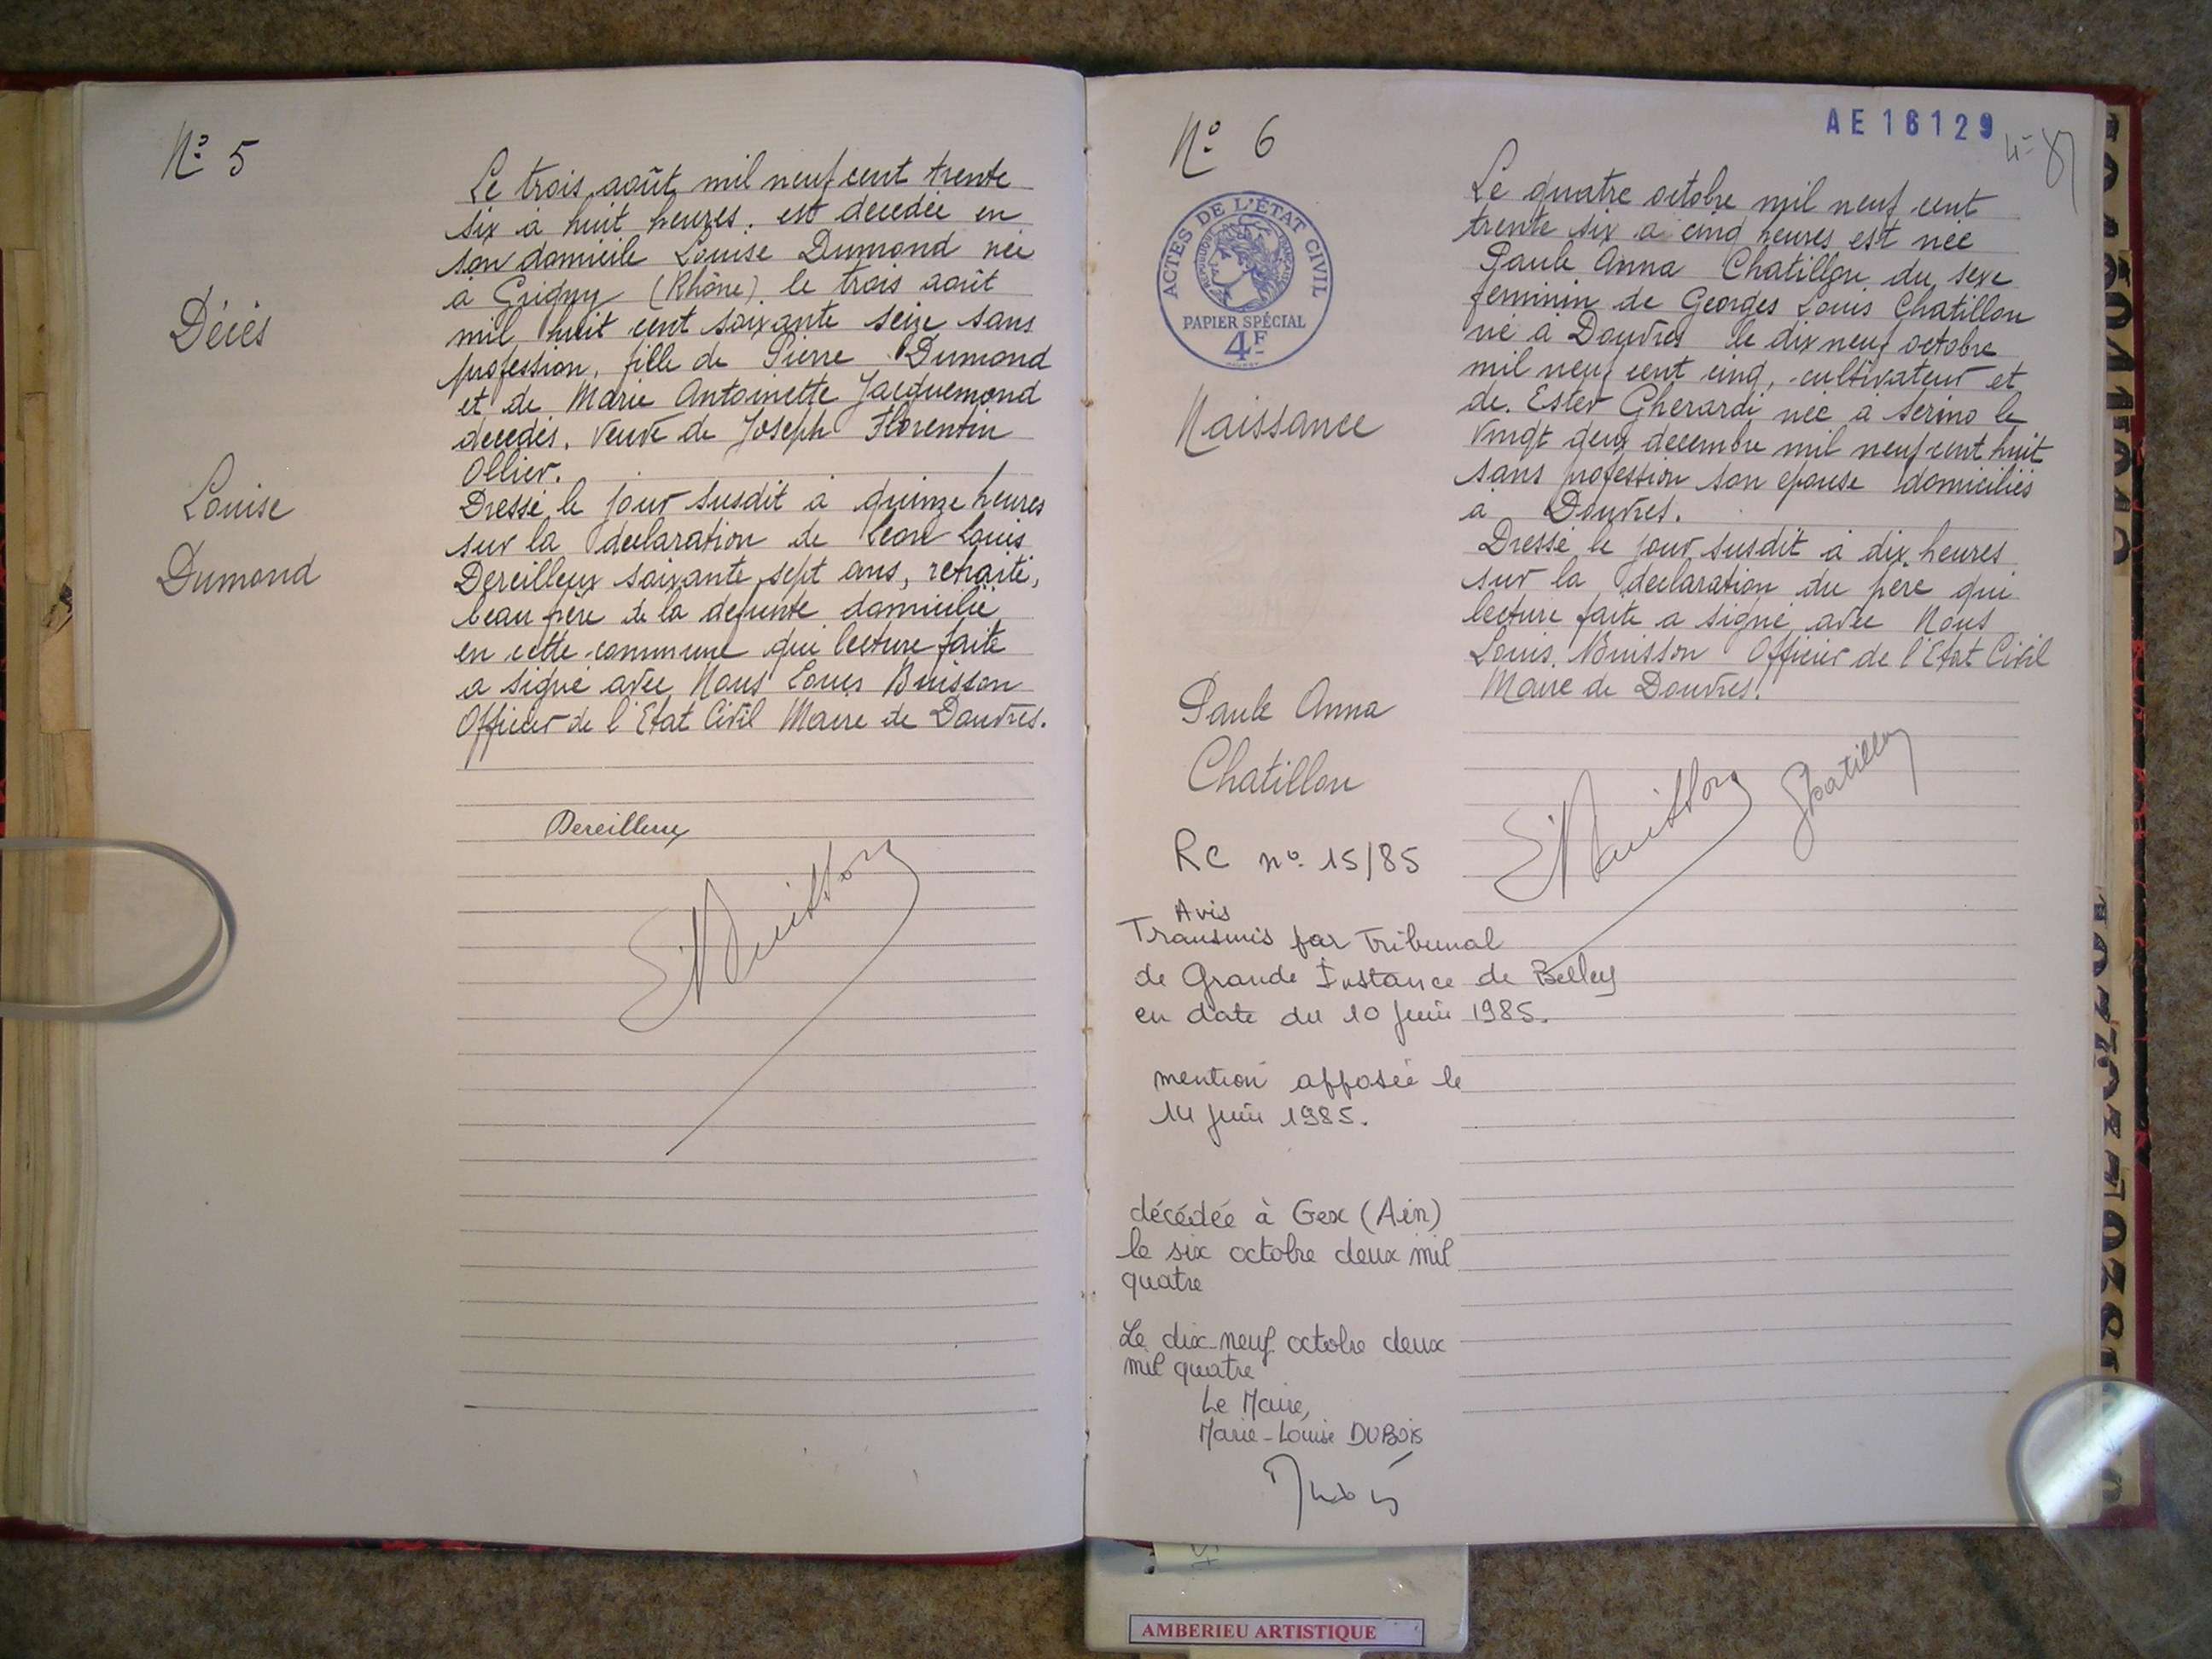 N° 5
Décès
Louise
Dumond
Le trois août mil neuf cent trente
six à huit heures, est décédée en
son domicile Louise Dumond née
à Grigny (Rhône) le trois août
mil huit cent soixante seize sans
profession, fille de Pierre Dumond
et de Marie Antoinette Jacquemond
décédés, veuve de Joseph Florentin
Ollier.
Dressé le jour susdit à quinze heures
sur la déclaration de Léon Louis
Dereilleux soixante sept ans, retraité,
beau père de la défunte domicilié
en cette commune qui lecture faite
a signé avec Nous Louis Buisson
Officier de l'Etat Civil Maire de Douvres.
Dereilleux
Buisson
AE 16129
N° 6
ACTES DE L'ÉTAT CIVIL
RÉPUBLIQUE FRANÇAISE
PAPIER SPÉCIAL
4F
Naissance
Paule Anna
Chatillon
Le quatre octobre mil neuf cent
trente six à cinq heures est née
Paule Anna Chatillon du sexe
féminin de Georges Louis Chatillon
né à Douvres le dix neuf octobre
mil neuf cent cinq, cultivateur et
de Ester Gherardi née à Serino le
vingt deux décembre mil neuf cent huit
sans profession son épouse domiciliés
à Douvres.
Dressé le jour susdit à dix heures
sur la déclaration du père qui
lecture faite a signé avec Nous
Louis Buisson Officier de l'Etat Civil
Maire de Douvres.
Buisson
Chatillon
RC n° 15/85
Avis
Transmis par Tribunal
de Grande Instance de Belley
en date du 10 juin 1985.
mention apposée le
14 juin 1985.
décédée à Gex (Ain)
le six octobre deux mil
quatre
Le dix-neuf octobre deux
mil quatre
Le Maire,
Marie-Louise DUBOIS
Dubois
AMBERIEU ARTISTIQUE